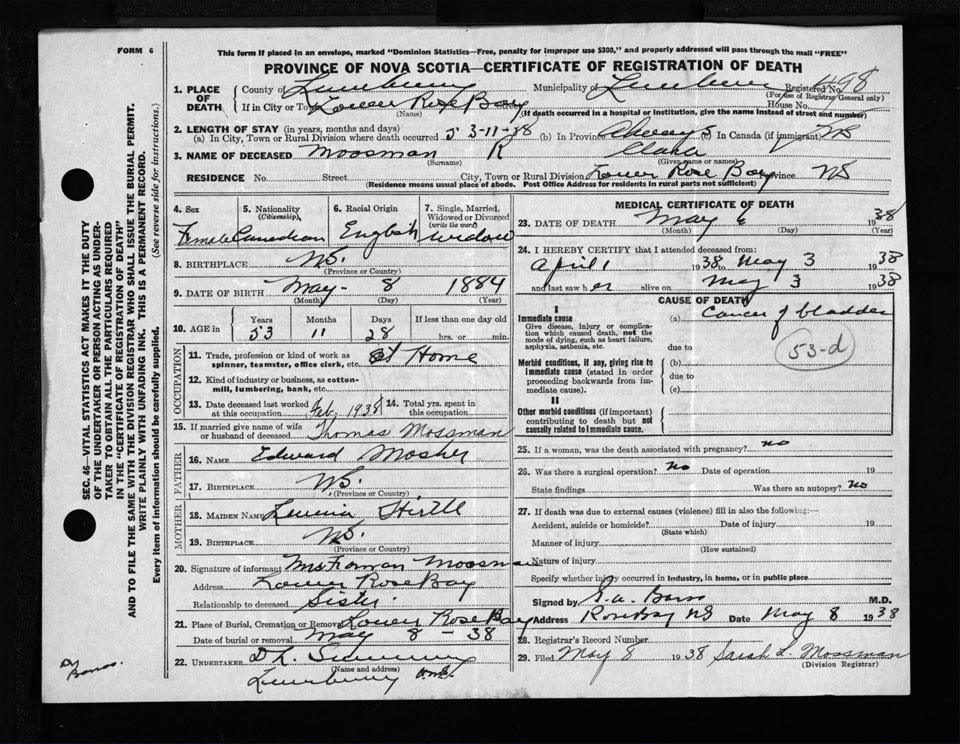 FORM 6
This form if placed in an envelope, marked "Dominion Statistics—Free, penalty for improper use $300," and properly addressed will pass through the mail "FREE"
PROVINCE OF NOVA SCOTIA—CERTIFICATE OF REGISTRATION OF DEATH
1. PLACE OF DEATH
County of Lunenburg Municipality of Lunenburg Registered No. 498
(For use of Registrar General only)
If in City or Town Lower Rose Bay House No.
(Name) (If death occurred in a hospital or institution, give the name instead of street and number)
2. LENGTH OF STAY (in years, months and days)
(a) In City, Town or Rural Division where death occurred 53-11-28 (b) In Province Always (c) In Canada (if immigrant) NS
3. NAME OF DECEASED Moosman K Clara
(Surname) (Given name or names)
RESIDENCE No. Street City, Town or Rural Division Lower Rose Bay Province NS
(Residence means usual place of abode. Post Office Address for residents in rural parts not sufficient)
4. Sex Female
5. Nationality (Citizenship) Canadian
6. Racial Origin English
7. Single, Married, Widowed or Divorced (write the word) widow
8. BIRTHPLACE NS.
(Province or Country)
9. DATE OF BIRTH May- 8 1884
(Month) (Day) (Year)
10. AGE in Years Months Days If less than one day old
53 11 28 hrs. or min.
OCCUPATION
11. Trade, profession or kind of work as spinner, teamster, office clerk, etc. At Home
12. Kind of industry or business, as cotton-mill, lumbering, bank, etc.
13. Date deceased last worked at this occupation Feb. 1938
14. Total yrs. spent in this occupation
15. If married give name of wife or husband of deceased Thomas Mossman
FATHER
16. NAME Edward Mosher
17. BIRTHPLACE NS.
(Province or Country)
MOTHER
18. MAIDEN NAME Hirtle
19. BIRTHPLACE NS.
(Province or Country)
20. Signature of informant Mrs Moosman
Address Lower Rose Bay
Relationship to deceased Sister
21. Place of Burial, Cremation or Removal Lower Rose Bay
Date of burial or removal May 8 - 38
22. UNDERTAKER
(Name and address)
Lunenburg
MEDICAL CERTIFICATE OF DEATH
23. DATE OF DEATH May 6 1938
(Month) (Day) (Year)
24. I HEREBY CERTIFY that I attended deceased from:
April 1 1938 to May 3 1938
and last saw her alive on May 3 1938
CAUSE OF DEATH
I
Immediate cause
Give disease, injury or complication which caused death, not the mode of dying, such as heart failure, asphyxia, asthenia, etc.
(a) Cancer of bladder
53-d
due to
Morbid conditions, if any, giving rise to immediate cause (stated in order proceeding backwards from immediate cause).
(b)
due to
(c)
II
Other morbid conditions (if important) contributing to death but not causally related to immediate cause.
25. If a woman, was the death associated with pregnancy? no
26. Was there a surgical operation? No Date of operation 19
State findings Was there an autopsy? No
27. If death was due to external causes (violence) fill in also the following:—
Accident, suicide or homicide? Date of injury 19
(State which)
Manner of injury
(How sustained)
Nature of injury
Specify whether injury occurred in industry, in home, or in public place
Signed by M.D.
Address Rose Bay NS Date May 8 1938
28. Registrar's Record Number
29. Filed May 8 1938 Sarah L. Mossman
(Division Registrar)
SEC. 46—VITAL STATISTICS ACT MAKES IT THE DUTY
OF THE UNDERTAKER OR PERSON ACTING AS UNDER-
TAKER TO OBTAIN ALL THE PARTICULARS REQUIRED
IN THE "CERTIFICATE OF REGISTRATION OF DEATH"
AND TO FILE THE SAME WITH THE DIVISION REGISTRAR WHO SHALL ISSUE THE BURIAL PERMIT.
WRITE PLAINLY WITH UNFADING INK. THIS IS A PERMANENT RECORD.
Every item of Information should be carefully supplied. (See reverse side for instructions.)